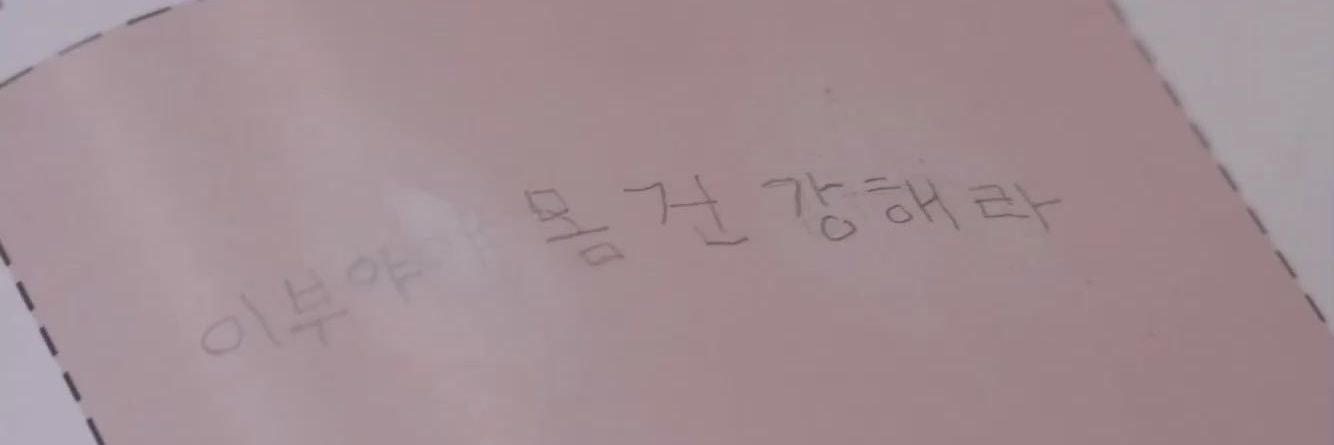 이부야 몸 건강해라